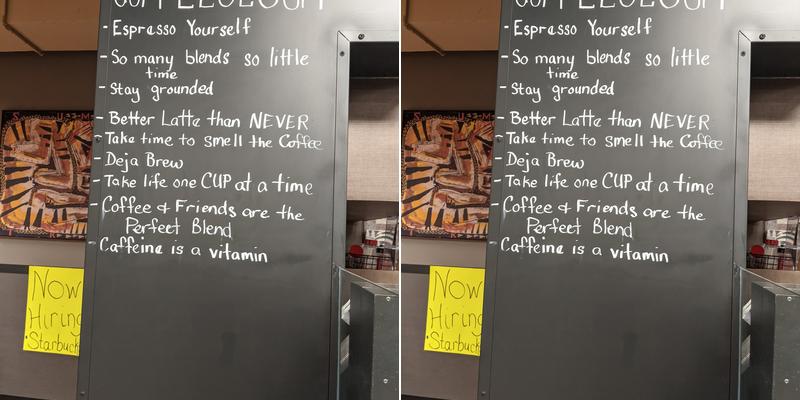 - Espresso Yourself
- So many blends so little
time
- Stay grounded
- Better Latte than NEVER
- Take time to smell the Coffee
- Deja Brew
- Take life one CUP at a time
- Coffee & Friends are the
Perfect Blend
- Caffeine is a vitamin
Now
Hiring
Starbuck
- Espresso Yourself
- So many blends so little
time
- Stay grounded
- Better Latte than NEVER
- Take time to smell the Coffee
- Deja Brew
- Take life one CUP at a time
- Coffee & Friends are the
Perfect Blend
- Caffeine is a vitamin
Now
Hiring
Starbuck